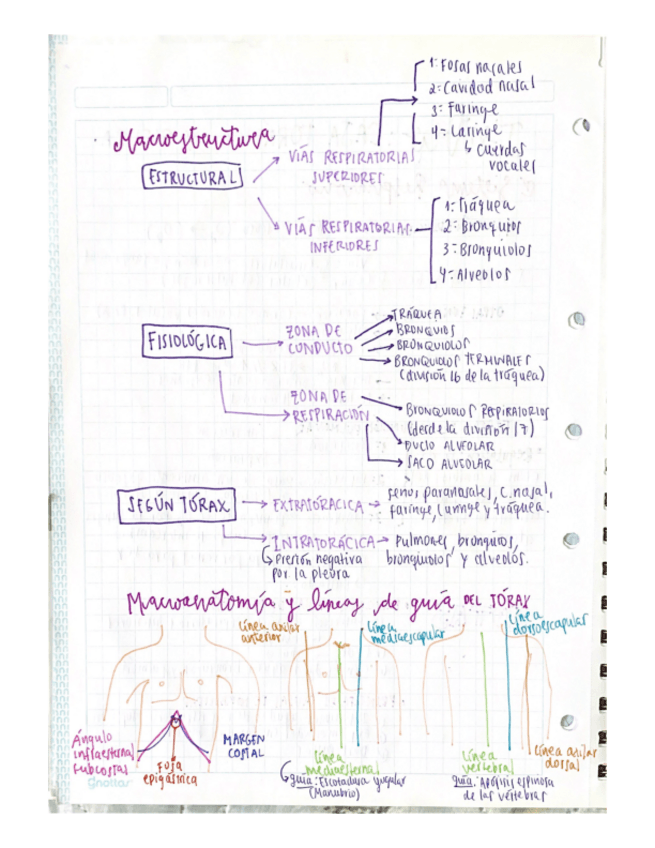 Macroestructura
ESTRUCTURAL
VÍAS RESPIRATORIAS
SUPERIORES
1: Fosas nasales
2: Cavidad nasal
3: Faringe
4: Laringe
↳ Cuerdas
vocales
VÍAS RESPIRATORIAS
INFERIORES
1: Tráquea
2: Bronquios
3: Bronquiolos
4: Alveolos
FISIOLÓGICA
ZONA DE
CONDUCTO
TRÁQUEA
BRONQUIOS
BRONQUIOLOS
BRONQUIOLOS TERMINALES
(división 16 de la tráquea)
ZONA DE
RESPIRACIÓN
BRONQUIOLOS RESPIRATORIOS
(desde la división 17)
DUCTO ALVEOLAR
SACO ALVEOLAR
SEGÚN TÓRAX
EXTRATORÁCICA
senos paranasales, C. nasal,
faringe, laringe y tráquea.
INTRATORÁCICA
Pulmones, bronquios,
bronquiolos y alveolos.
↳ Presión negativa
por la pleura
Macroanatomía y líneas de guía DEL TÓRAX
Línea axilar
anterior
Línea
medioescapular
Línea
dorsoescapular
Ángulo
infraesternal
subcostal
FOSA
epigástrica
MARGEN
COSTAL
Línea
medioesternal
↳ guía: Escotadura yugular
(Manubrio)
Línea
vertebral
guía: Apófisis espinosa
de las vértebras
Línea axilar
dorsal